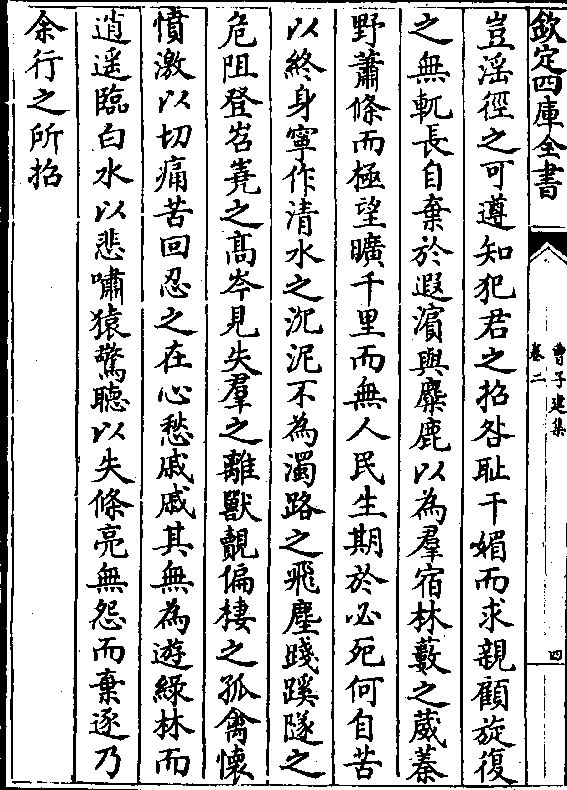 欽定四庫全書
曹子建集
卷二
四
豈滛徑之可遵知犯君之招咎耻干媚而求親顧旋復
之無軏長自棄於遐濱與麋鹿以為羣宿林藪之葳蓁
野蕭條而極望曠千里而無人民生期於必死何自苦
以終身寧作清水之沉泥不為濁路之飛塵踐蹊隧之
危阻登岧嶤之髙岑見失羣之離獸覿偏棲之孤禽懷
憤激以切痛苦回忍之在心愁戚戚其無為遊緑林而
逍遥臨白水以悲嘯猿驚聽以失條亮無怨而棄逐乃
余行之所招